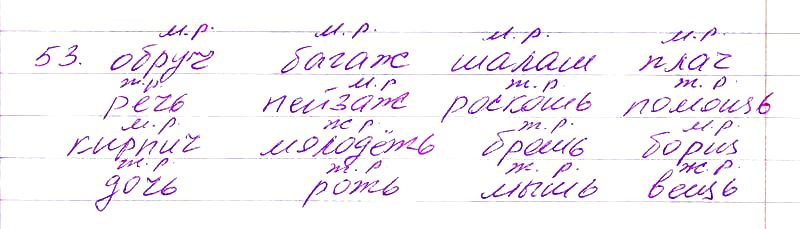 м.р. м.р. м.р. м.р.
53. обруч багаж шалаш плач
ж.р. м.р ж.р. ж.р.
речь пейзаж роскошь помощь
м.р. ж.р ж.р. м.р.
кирпич молодёжь брошь борщ
ж.р. ж.р. ж.р. ж.р.
дочь рожь мышь вещь